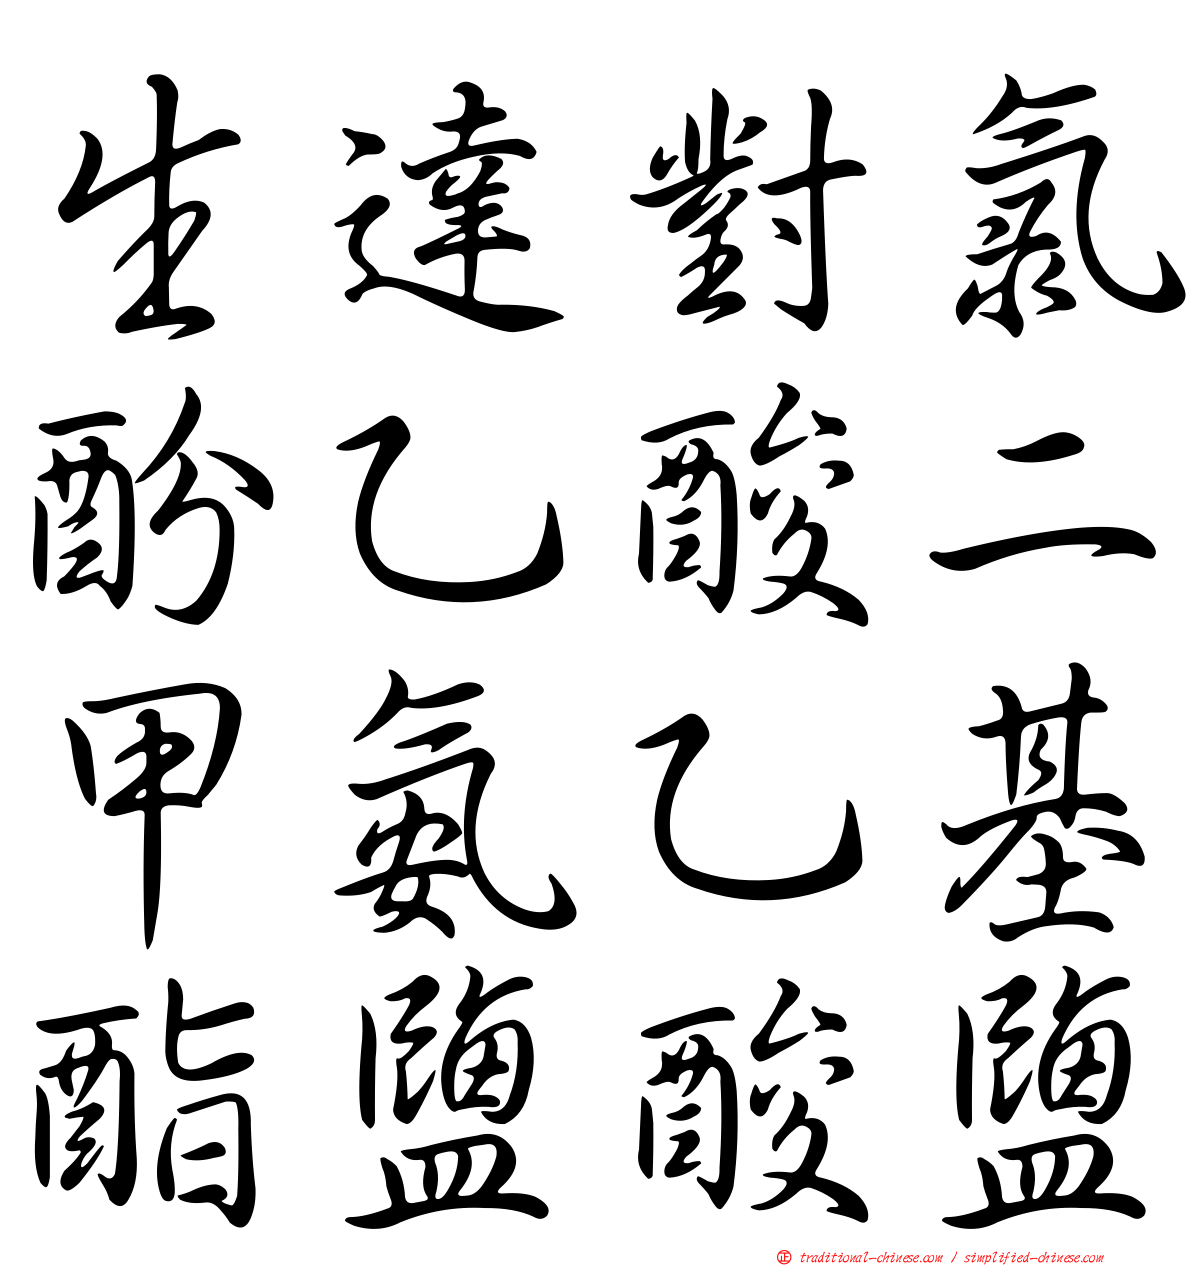 生達對氯
酚乙酸二
甲氨乙基
酯鹽酸鹽
正 traditional-chinese.com / simplified-chinese.com